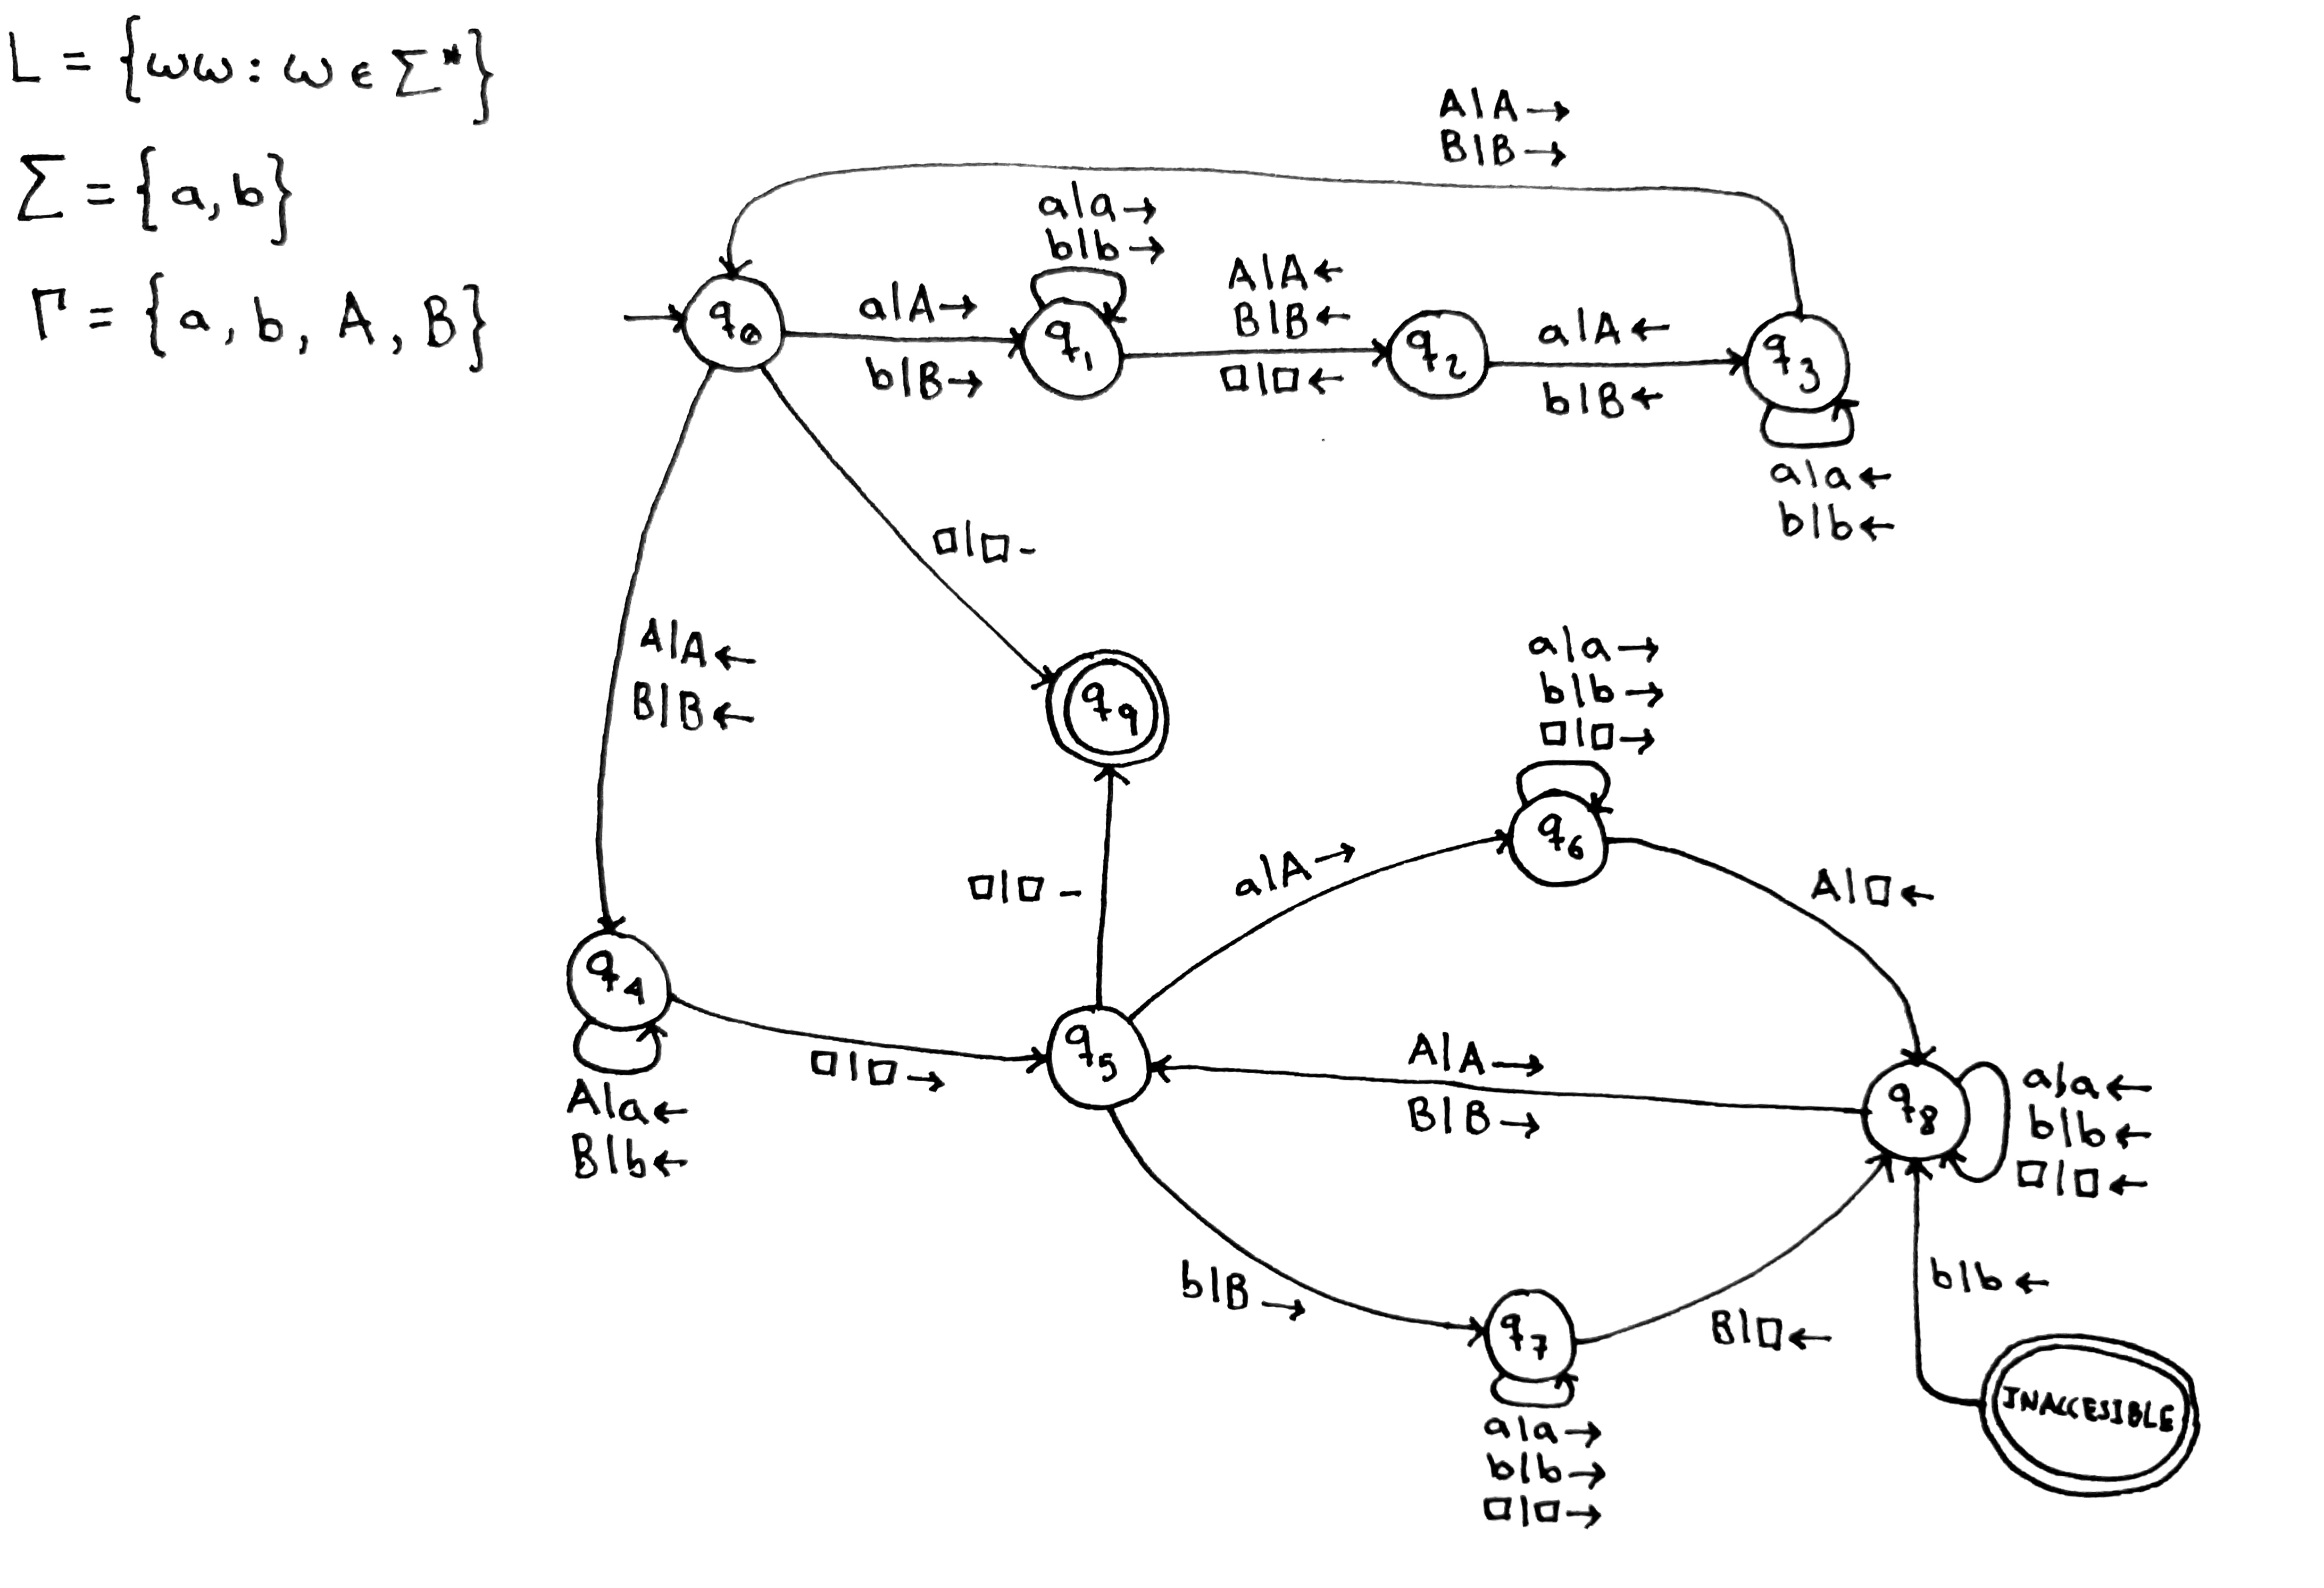 L = {ωω : ω ϵ Σ*}
Σ = {a, b}
Γ = {a, b, A, B}
A|A→
B|B→
a|a→
b|b→
q0
a|A→
b|B→
q1
A|A←
B|B←
□|□←
q2
a|A←
b|B←
q3
a|a←
b|b←
□|□-
A|A←
B|B←
q9
a|a→
b|b→
□|□→
q6
□|□-
a|A→
A|□←
q4
A|a←
B|b←
□|□→
q5
A|A→
B|B→
q8
a|a←
b|b←
□|□←
b|B→
q7
B|□←
b|b←
INACCESIBLE
a|a→
b|b→
□|□→